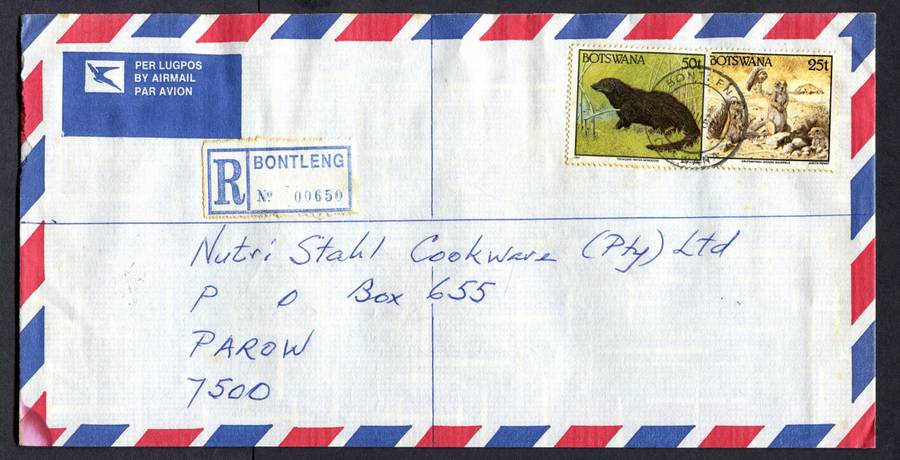 PER LUGPOS
BY AIRMAIL
PAR AVION
BOTSWANA 50t
BOTSWANA 25t
BONTLENG
R BONTLENG
No 00650
Nutri Stahl Cookware (Pty) Ltd
P O Box 655
PAROW
7500